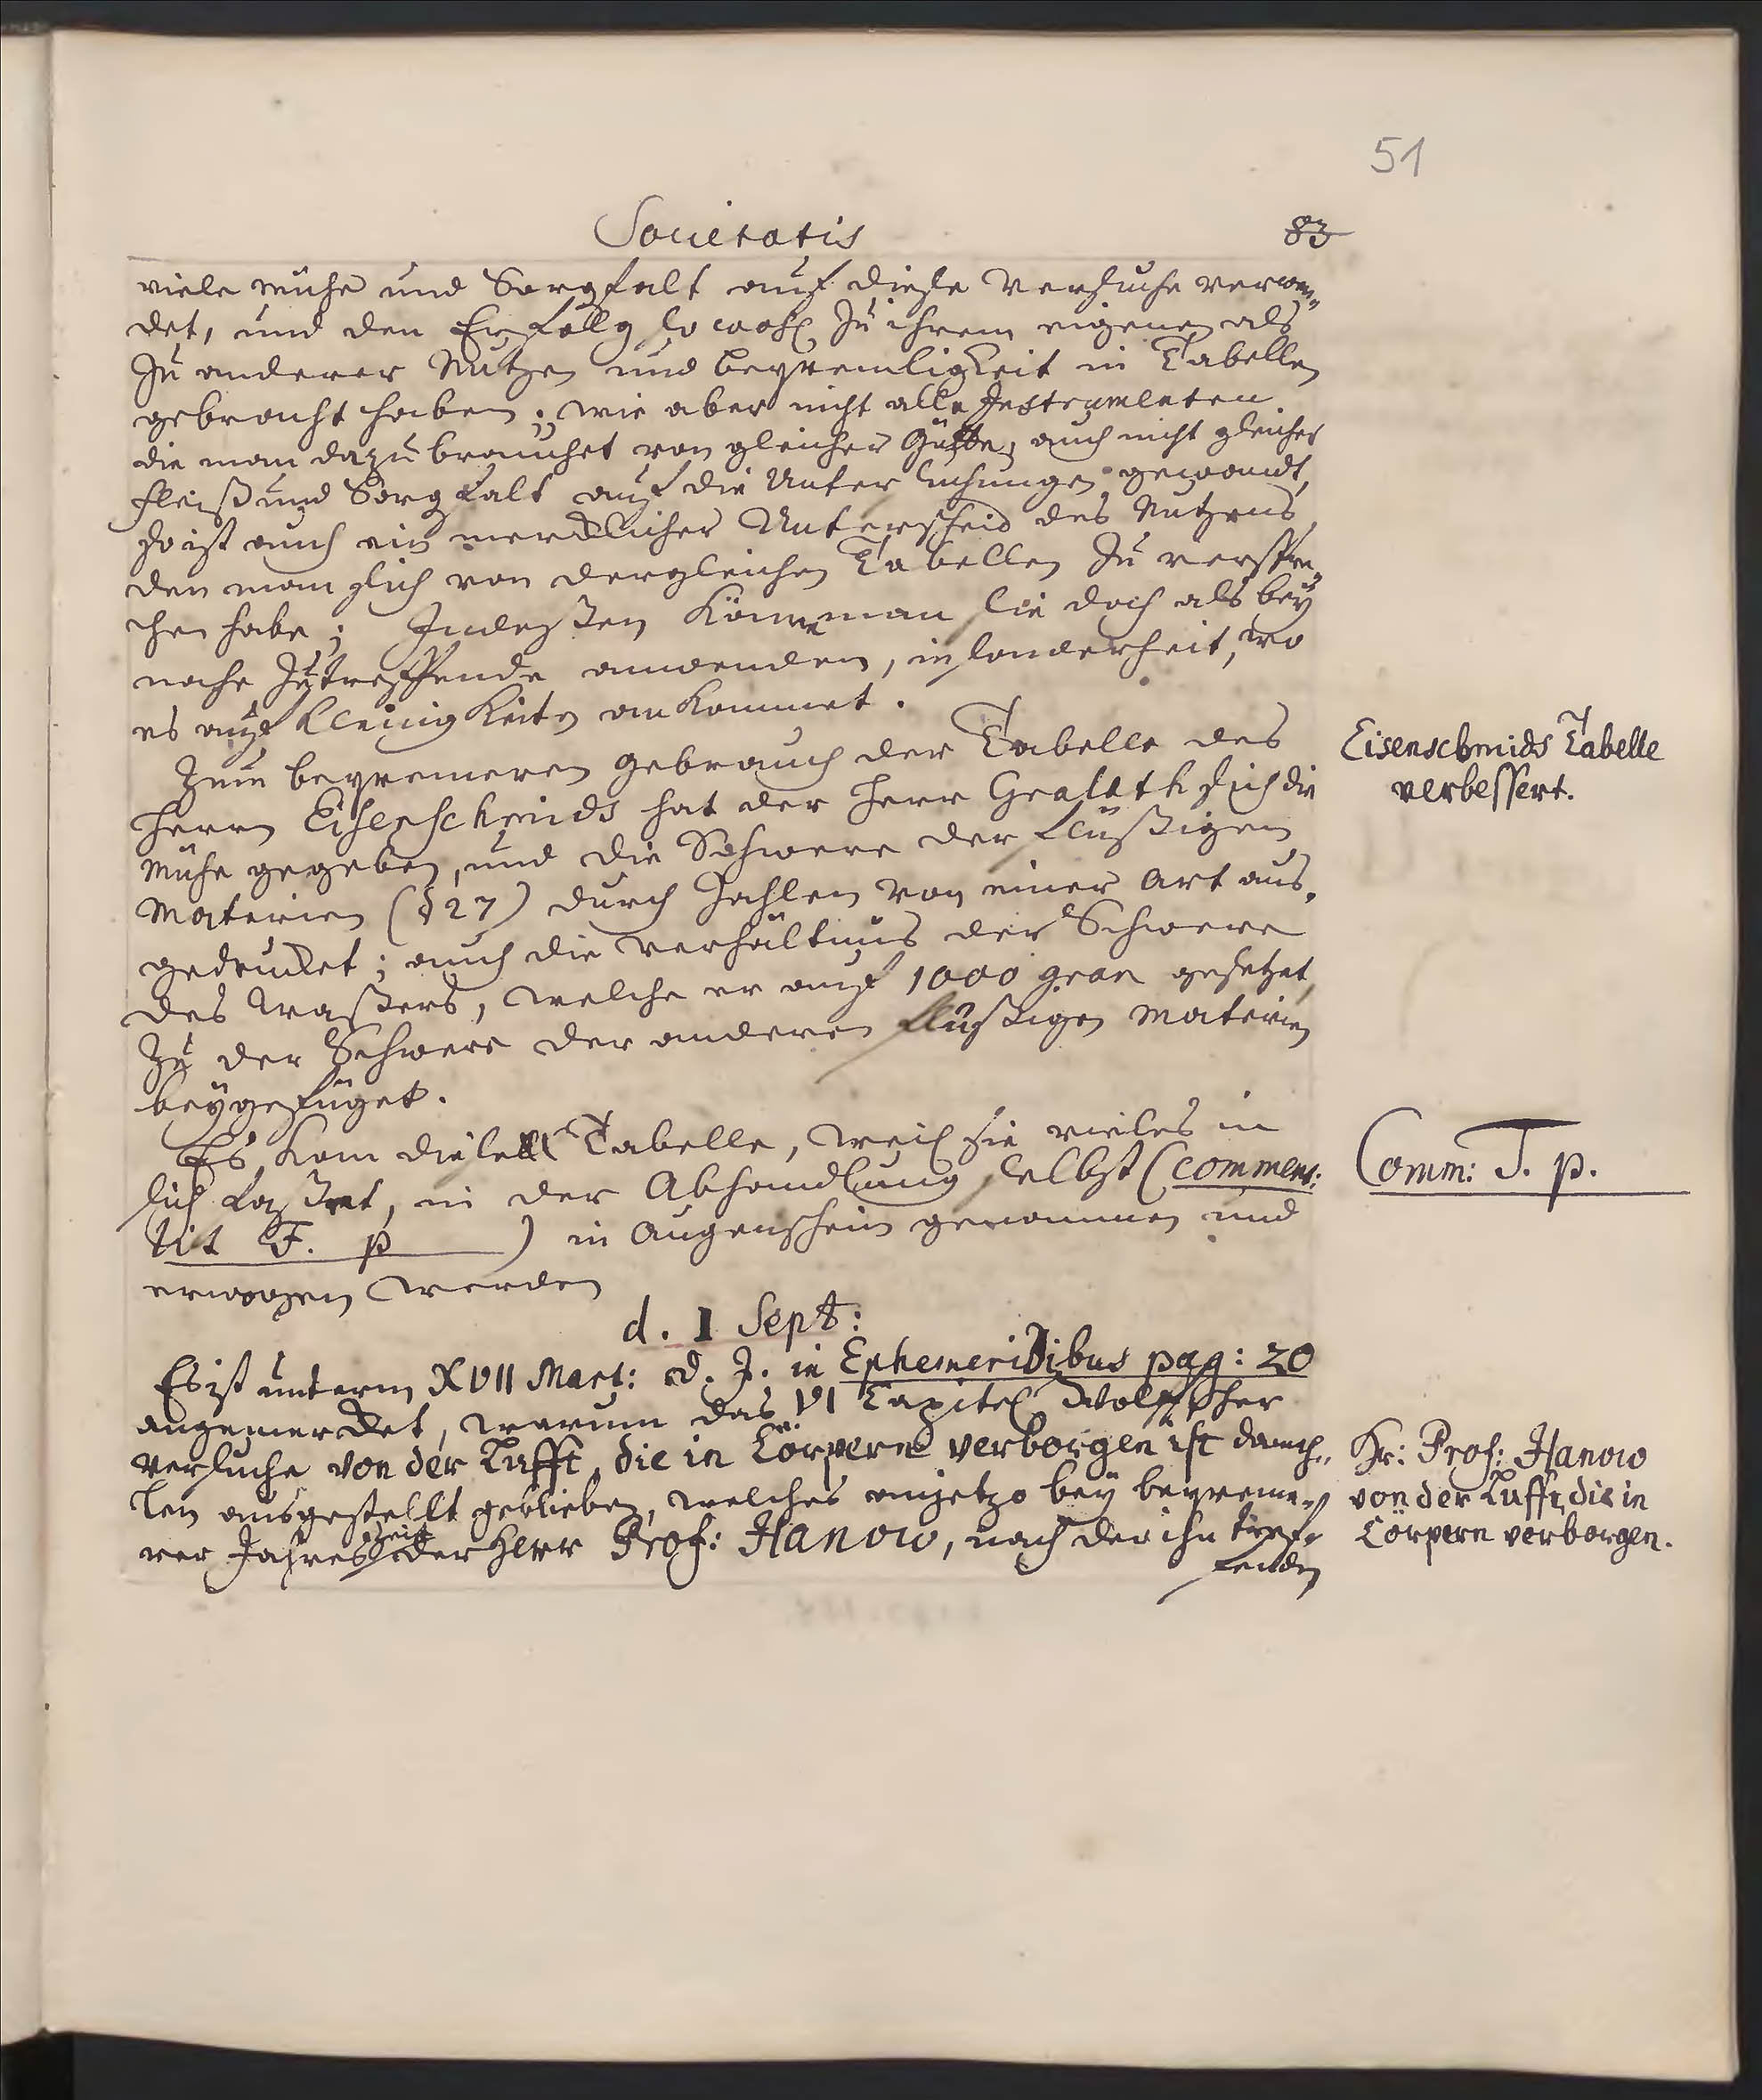 51
Societatis 83
viele mühe und Sorgfalt auf diese Versuche verwen„
det, und den Erfolg so wohl zu ihrem eigenen als
zu anderer Nutzen und beqvemligkeit in Tabellen
gebracht haben; wie aber nicht alle Instrumenten
die man dazu brauchet von gleicher Gütte, auch nicht gleicher
fleiß und Sorgfalt auf die Untersuchungen gewandt,
so ist auch ein mercklicher Unterscheid des Nutzens,
den man sich von dergleichen Tabellen zu verspre„
chen habe; Indeßen könne man sie doch als bey
nahe zutreffende anwenden, insonderheit, wo
es auf Kleinigkeiten ankommet.
Zum beqvemeren gebrauch der Tabelle des
Herrn Eisenschmids hat der Herr Gralath sich die
mühe gegeben, und die Schwere der flüßigen
Materien (§ 27) durch Zahlen von einer Art aus„
gedrucket; auch die verhältnus der Schwere
des Waßers, welche er auf 1000 gran gesetzet,
zu der Schwere der anderen flüßigen Materien
beygefüget.
Es kan diese Tabelle, weil sie vieles in
sich faßet, in der Abhandlung selbst (comment:
lit F. p ) in Augenschein genommen und
erwogen werden
d. 1 Sept:
Es ist unterm XVII Mart: d. J. in Ephemeridibus pag: 20
angemercket, warum das VI Capitel Wolffscher
versuche von der Lufft, die in Cörpern verborgen ist damah„
len ausgestellt geblieben, welches anjetzo bey beqveme„
rer Jahreszeit der Herr Prof: Hanow, nach der ihn tref„
fenden
Eisenschmids Tabelle
verbessert.
Comm: T. p.
Hr: Prof: Hanow
von der Lufft, die in
Cörpern verborgen.